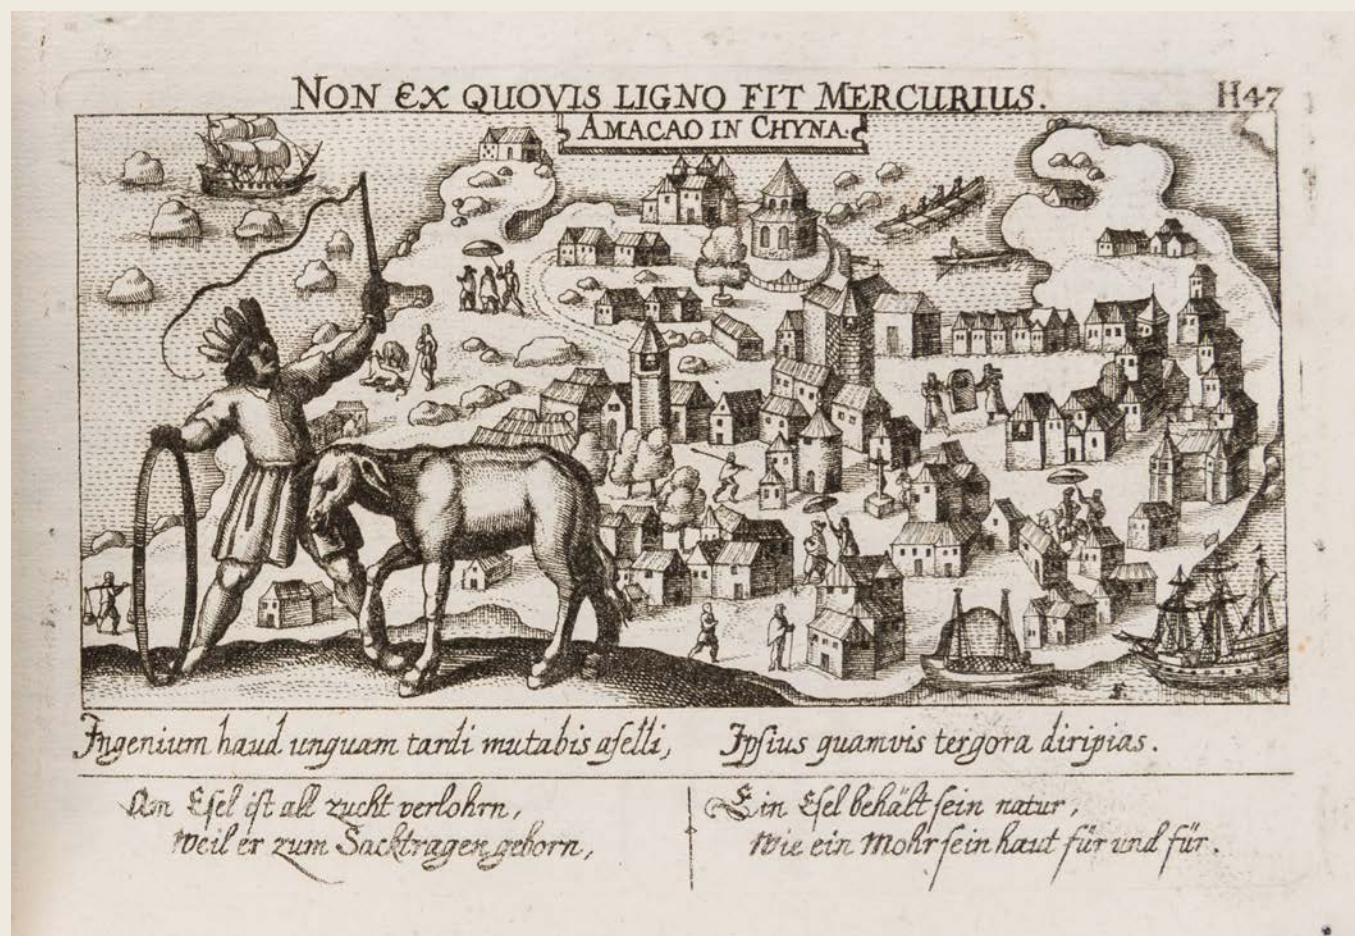 NON EX QUOVIS LIGNO FIT MERCURIUS.
H47
AMACAO IN CHYNA.
Ingenium haud unquam tardi mutabis aselli, Ipsius quamvis tergora diripias.
Am Esel ist all zucht verlohrn,
Weil er zum Sacktragen geborn,
Ein Esel behält sein natur,
Wie ein Mohr sein haut für und für.